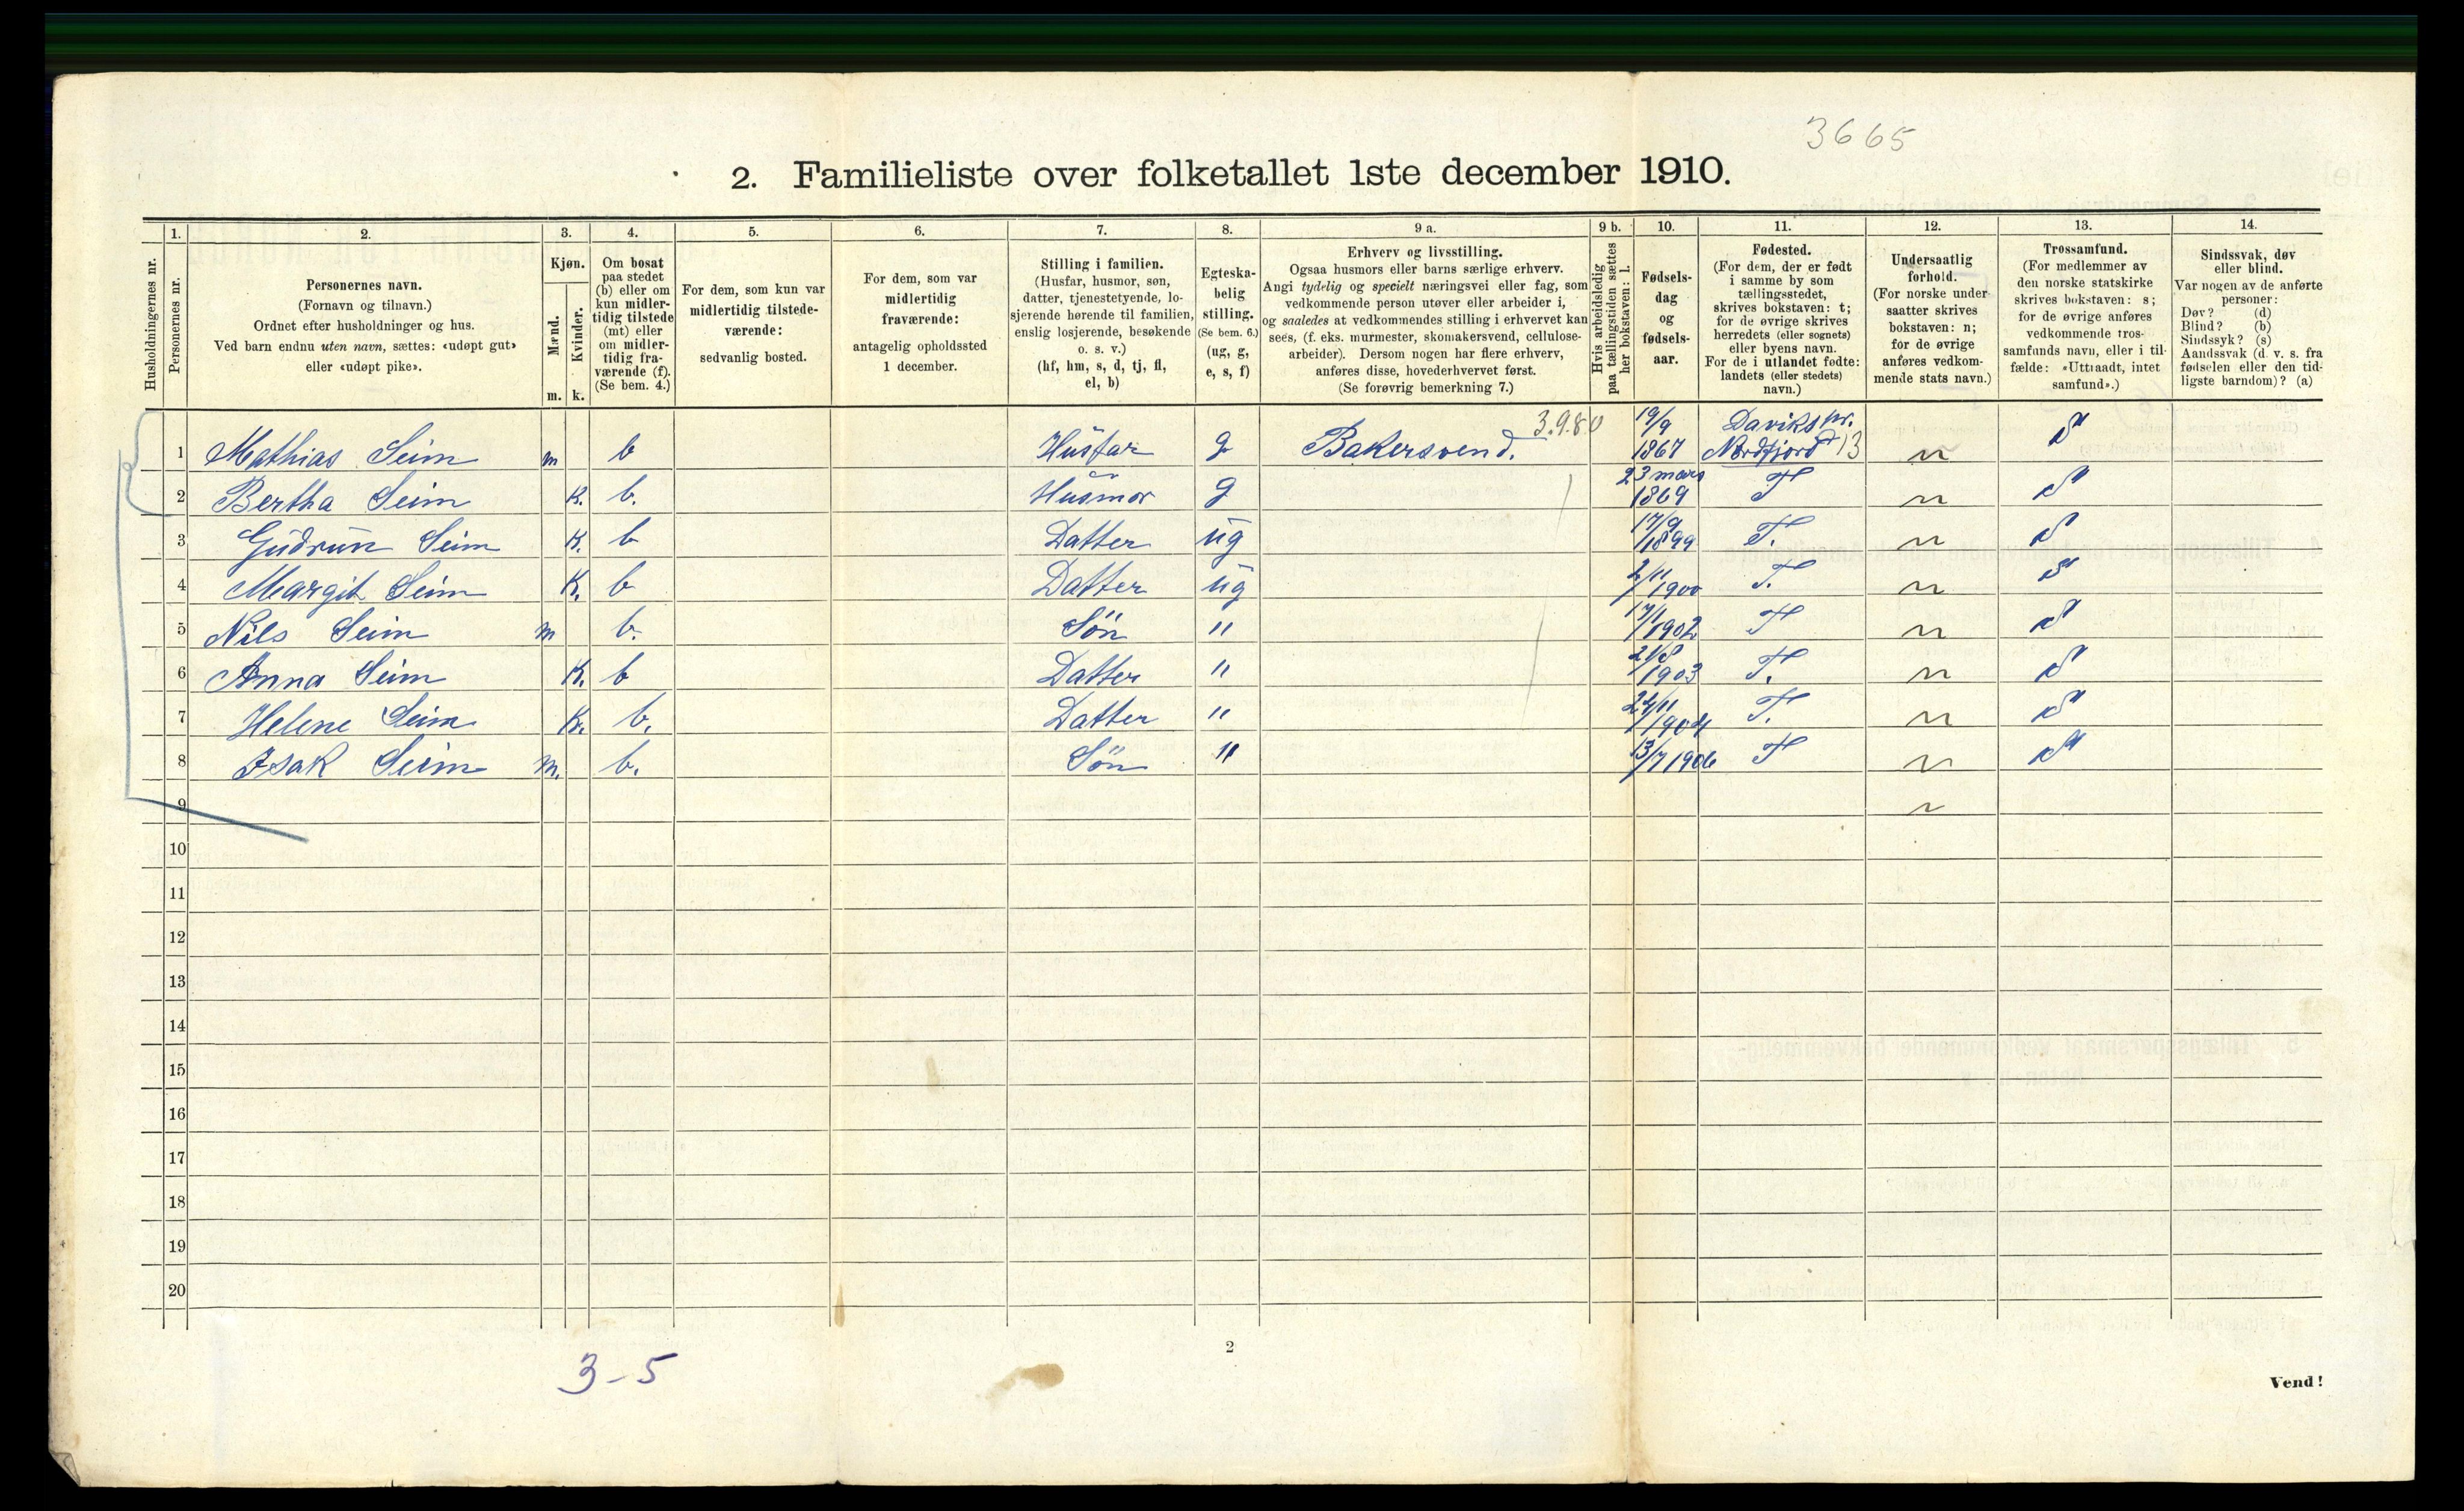 3665
2. Familieliste over folketallet 1ste december 1910.
Husholdningernes nr.
1.
Personernes nr.
2.
Personernes navn.
(Fornavn og tilnavn.)
Ordnet efter husholdninger og hus.
Ved barn endnu uten navn, sættes: «udøpt gut»
eller «udøpt pike».
3.
Kjøn.
Mænd.
Kvinder.
m. k.
4.
Om bosat
paa stedet
(b) eller om
kun midler-
tidig tilstede
(mt) eller
om midler-
tidig fra-
værende (f).
(Se bem. 4.)
5.
For dem, som kun var
midlertidig tilstede-
værende:
sedvanlig bosted.
6.
For dem, som var
midlertidig
fraværende:
antagelig opholdssted
1 december.
7.
Stilling i familien.
(Husfar, husmor, søn,
datter, tjenestetyende, lo-
sjerende hørende til familien,
enslig losjerende, besøkende
o. s. v.)
(hf, hm, s, d, tj, fl,
el, b)
8.
Egteska-
belig
stilling.
(Se bem. 6.)
(ug, g,
e, s, f)
9 a.
Erhverv og livsstilling.
Ogsaa husmors eller barns særlige erhverv.
Angi tydelig og specielt næringsvei eller fag, som
vedkommende person utøver eller arbeider i,
og saaledes at vedkommendes stilling i erhvervet kan
sees, (f. eks. murmester, skomakersvend, cellulose-
arbeider). Dersom nogen har flere erhverv,
anføres disse, hovederhvervet først.
(Se forøvrig bemerkning 7.)
9 b.
Hvis arbeidsledig
paa tællingstiden sættes
her bokstaven: l.
10.
Fødsels-
dag
og
fødsels-
aar.
11.
Fødested.
(For dem, der er født
i samme by som
tællingsstedet,
skrives bokstaven: t;
for de øvrige skrives
herredets (eller sognets)
eller byens navn.
For de i utlandet fødte:
landets (eller stedets)
navn.)
12.
Undersaatlig
forhold.
(For norske under-
saatter skrives
bokstaven: n;
for de øvrige
anføres vedkom-
mende stats navn.)
13.
Trossamfund.
(For medlemmer av
den norske statskirke
skrives bokstaven: s;
for de øvrige anføres
vedkommende tros-
samfunds navn, eller i til-
fælde: «Uttraadt, intet
samfund».)
14.
Sindssvak, døv
eller blind.
Var nogen av de anførte
personer:
Døv? (d)
Blind? (b)
Sindssyk? (s)
Aandssvak (d. v. s. fra
fødselen eller den tid-
ligste barndom)? (a)
1 Mathias Seim m b Husfar g Bakersvend. 3.9.8.0 19/9 1867 Daviks pr. Nordfjord 13 n S
2 Bertha Seim K. b. Husmor g 23 mars 1869 T n S
3 Gudrun Seim K. b Datter ug 17/9 1899 T. n S
4 Margit Seim K. b Datter ug 2/11 1900 T. n S
5 Nils Seim m b. Søn " 17/1 1902 T n S
6 Anna Seim K. b Datter " 21/8 1903 T. n S
7 Helene Seim K. b. Datter " 24/11 1904 T. n S
8 Isak Seim m. b. Søn " 13/7 1906 T n S
9 n
10
11
12
13
14
15
16
17
18
19
20
2
3-5
Vend!